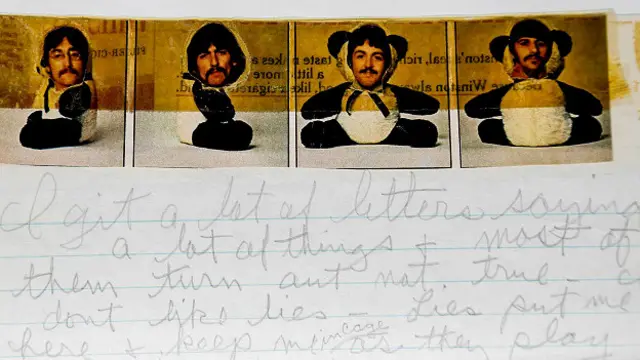 FILTER-CIG
Winston's real, rich, taste makes a
a little more
Because Winston always like a cigarette
I git a lot of letters saying
a lot of things & most of
them turn out not true –
dont like lies – Lies put me
in cage
here & keep me as they play